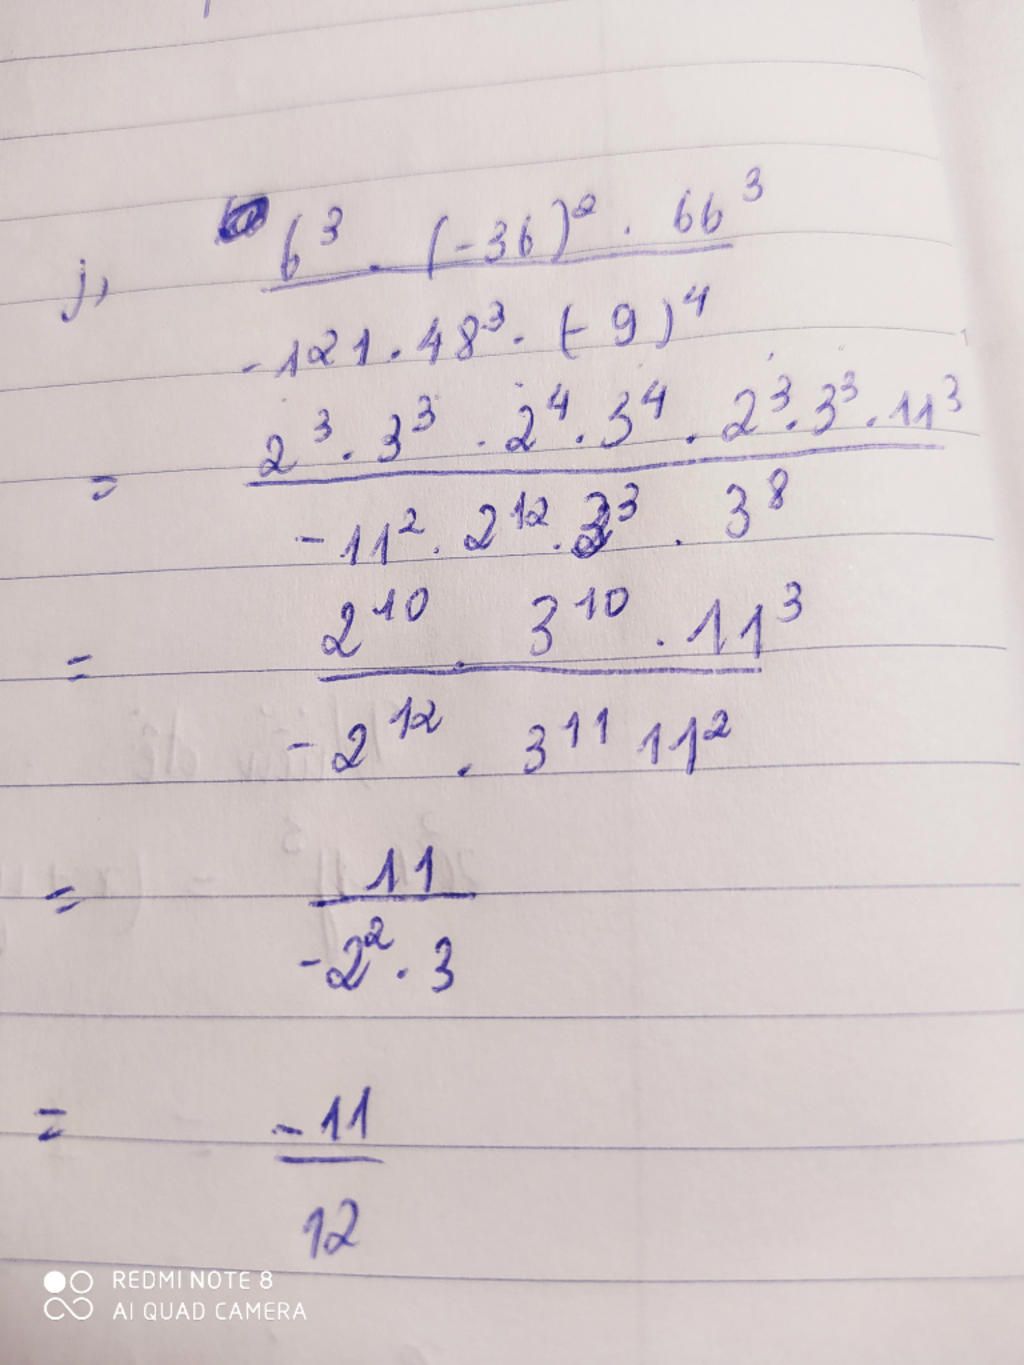 j, 6³ . (-36)² . 66³
-121 . 48³ . (-9)⁴
= 2³ . 3³ . 2⁴ . 3⁴ . 2³ . 3³ . 11³
-11² . 2¹² . 3³ . 3⁸
= 2¹⁰ . 3¹⁰ . 11³
-2¹² . 3¹¹ 11²
= 11
-2² . 3
= -11
12
REDMI NOTE 8
AI QUAD CAMERA